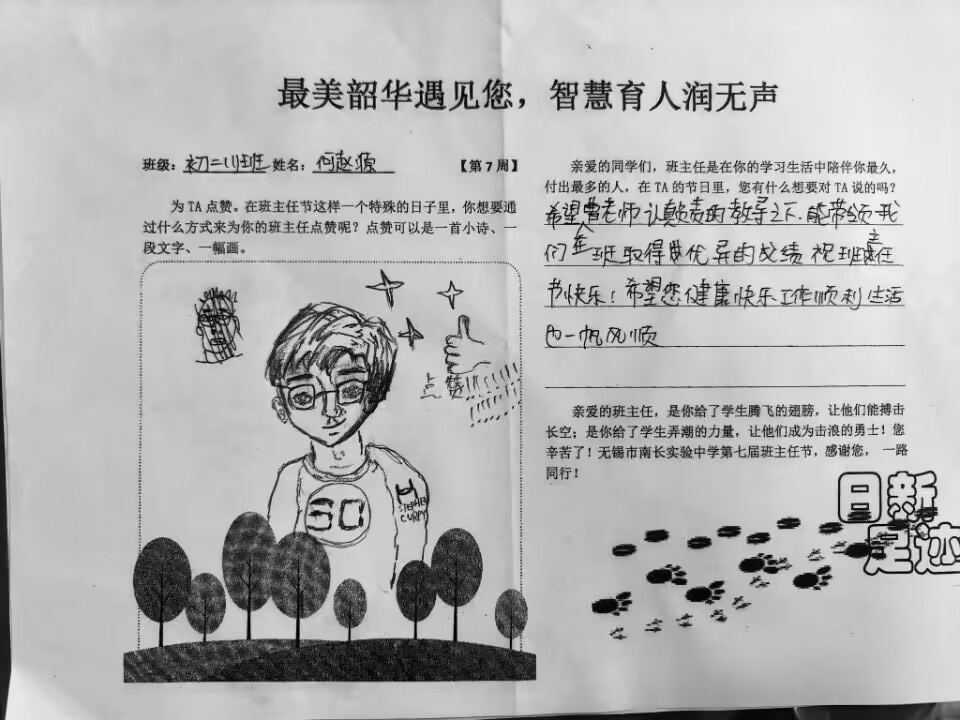 最美韶华遇见您，智慧育人润无声
班级：初二（1）班 姓名：何赵源 【第7周】
为TA点赞。在班主任节这样一个特殊的日子里，你想要通
过什么方式来为你的班主任点赞呢？点赞可以是一首小诗、一
段文字、一幅画。
点赞
30
STEPHEN
CURRY
亲爱的同学们，班主任是在你的学习生活中陪伴你最久，
付出最多的人，在TA的节日里，您有什么想要对TA说的吗？
希望曹老师认真负责的教导之下.能带领我
们在班取得优异的成绩 祝班主任
节快乐！希望您健康快乐工作顺利生活
也一帆风顺
亲爱的班主任，是你给了学生腾飞的翅膀，让他们能搏击
长空；是你给了学生弄潮的力量，让他们成为击浪的勇士！您
辛苦了！无锡市南长实验中学第七届班主任节，感谢您，一路
同行！
日新
足迹